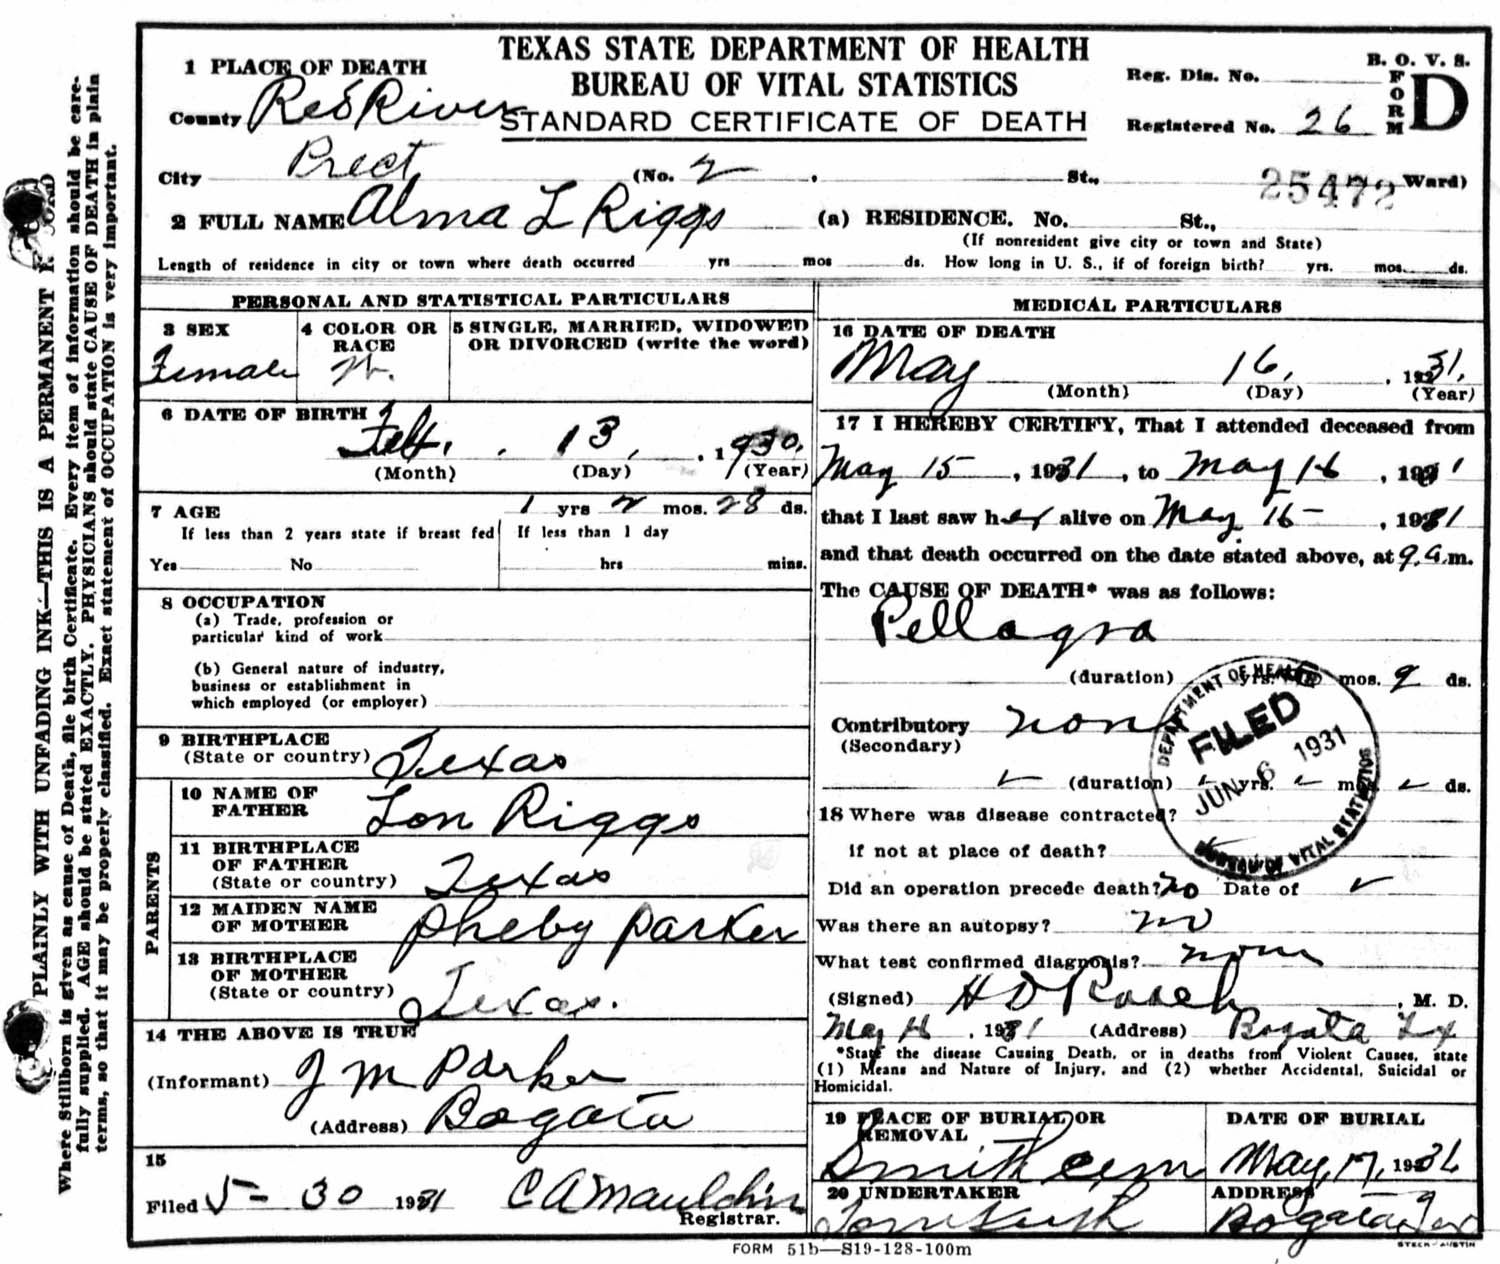 TEXAS STATE DEPARTMENT OF HEALTH
BUREAU OF VITAL STATISTICS
STANDARD CERTIFICATE OF DEATH
B. O. V. S.
FORM D
Reg. Dis. No.
Registered No. 26
1 PLACE OF DEATH
County Red River
City Prect (No. 2 , St., Ward)
25472
2 FULL NAME Alma L Riggs (a) RESIDENCE. No. St.,
(If nonresident give city or town and State)
Length of residence in city or town where death occurred yrs mos ds. How long in U. S., if of foreign birth? yrs. mos. ds.
PERSONAL AND STATISTICAL PARTICULARS
3 SEX
Female
4 COLOR OR RACE
W.
5 SINGLE, MARRIED, WIDOWED
OR DIVORCED (write the word)
6 DATE OF BIRTH
Feb. 13, 1930.
(Month) (Day) (Year)
7 AGE 1 yrs 2 mos. 28 ds.
If less than 2 years state if breast fed
Yes No
If less than 1 day
hrs mins.
8 OCCUPATION
(a) Trade, profession or
particular kind of work
(b) General nature of industry,
business or establishment in
which employed (or employer)
9 BIRTHPLACE
(State or country) Texas
PARENTS
10 NAME OF
FATHER Lon Riggs
11 BIRTHPLACE
OF FATHER
(State or country) Texas
12 MAIDEN NAME
OF MOTHER Pheby Parker
13 BIRTHPLACE
OF MOTHER
(State or country) Texas.
14 THE ABOVE IS TRUE
(Informant) J M Parker
(Address) Bogata
15
Filed 5-30 1931 C A Mauldin
Registrar.
MEDICAL PARTICULARS
16 DATE OF DEATH
May 16, 1931.
(Month) (Day) (Year)
17 I HEREBY CERTIFY, That I attended deceased from
May 15, 1931, to May 16, 1931
that I last saw her alive on May 16-, 1931
and that death occurred on the date stated above, at 9 a.m.
The CAUSE OF DEATH* was as follows:
Pellagra
(duration) yrs. mos. 9 ds.
Contributory none
(Secondary)
(duration) yrs. mos. ds.
DEPARTMENT OF HEALTH
FILED
JUN 6 1931
BUREAU OF VITAL STATISTICS
18 Where was disease contracted?
if not at place of death?
Did an operation precede death? no Date of
Was there an autopsy? no
What test confirmed diagnosis? none
(Signed) H D Roach, M. D.
May 16, 1931 (Address) Bogata Tx
*State the disease Causing Death, or in deaths from Violent Causes, state
(1) Means and Nature of Injury, and (2) whether Accidental, Suicidal or
Homicidal.
19 PLACE OF BURIAL OR
REMOVAL
Smith cem
DATE OF BURIAL
May, 17, 1931
20 UNDERTAKER
ADDRESS
Bogata, Tex
FORM 51b—S19-128-100m
STECK-AUSTIN
PLAINLY WITH UNFADING INK—THIS IS A PERMANENT RECORD
Where Stillborn is given as cause of Death, file birth Certificate. Every item of information should be care-
fully supplied. AGE should be stated EXACTLY. PHYSICIANS should state CAUSE OF DEATH in plain
terms, so that it may be properly classified. Exact statement of OCCUPATION is very important.